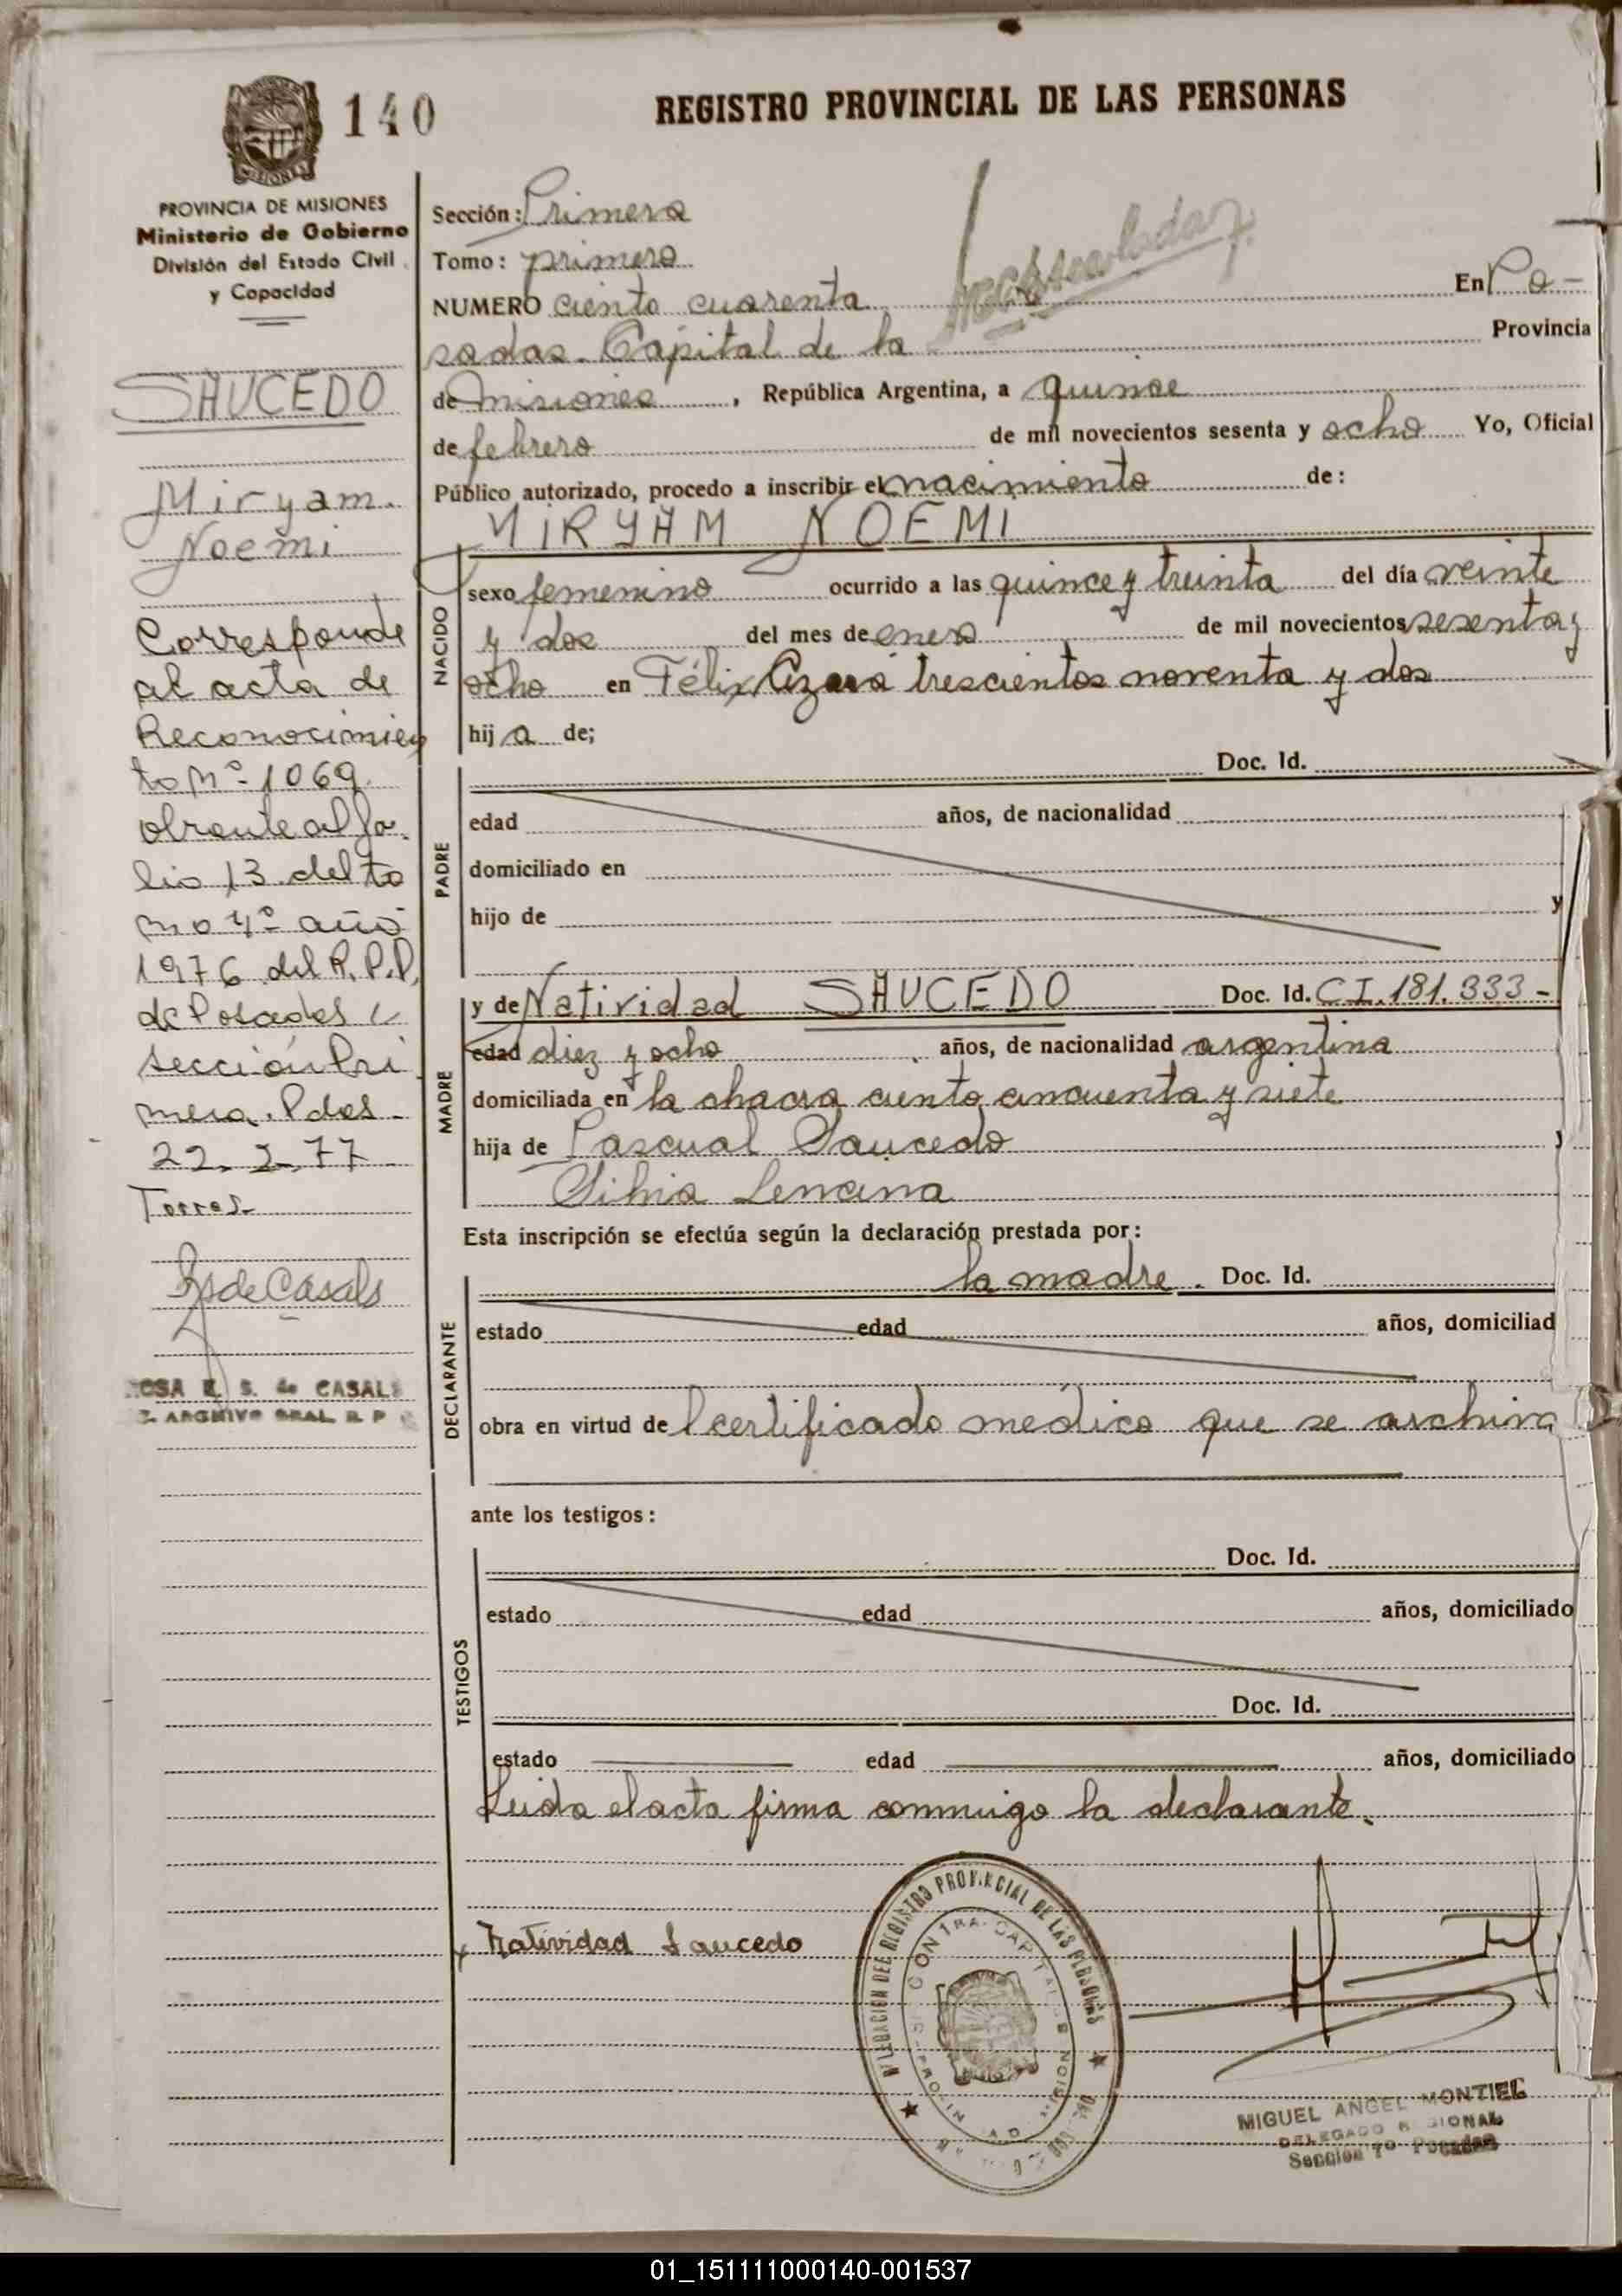 140
REGISTRO PROVINCIAL DE LAS PERSONAS
MISIONES
PROVINCIA DE MISIONES
Ministerio de Gobierno
División del Estado Civil
y Capacidad
SAUCEDO
Miryam.
Noemi
Corresponde
al acta de
Reconocimien
to Nº 1069
obrante al fo.
lio 13 del to
mo 4º año
1976 del R.P.P.
de Posadas
sección Pri
mera. Pdas -
22.2.77
Torres
R S de Casals
ROSA E. S. de CASALS
ARCHIVO GRAL. R. P.
Sección: Primera
Tomo: primero
NUMERO ciento cuarenta En Po-
sadas. Capital de la Provincia
de misiones, República Argentina, a quince
de febrero de mil novecientos sesenta y ocho Yo, Oficial
Público autorizado, procedo a inscribir el nacimiento de:
MIRYAM NOEMI
NACIDO
sexo femenino ocurrido a las quince y treinta del día veinte
y dos del mes de enero de mil novecientos sesenta y
ocho en Félix Azara trescientos noventa y dos
hija de;
PADRE
Doc. Id.
edad años, de nacionalidad
domiciliado en
hijo de y
MADRE
y de Natividad SAUCEDO Doc. Id. C.I. 181.333-
edad diez y ocho años, de nacionalidad argentina
domiciliada en la chacra ciento cincuenta y siete
hija de Pascual Saucedo y
Silvia Lencina
Esta inscripción se efectúa según la declaración prestada por:
DECLARANTE
la madre. Doc. Id.
estado edad años, domiciliad
obra en virtud del certificado médico que se archiva
ante los testigos:
TESTIGOS
Doc. Id.
estado edad años, domiciliado
Doc. Id.
estado edad años, domiciliado
Leida el acta firma conmigo la declarante.
x Natividad Saucedo
DELEGACION DEL REGISTRO PROVINCIAL DE LAS PERSONAS
MIGUEL ANGEL MONTIEL
DELEGADO REGIONAL
Seccion 1º Posadas
01_151111000140-001537